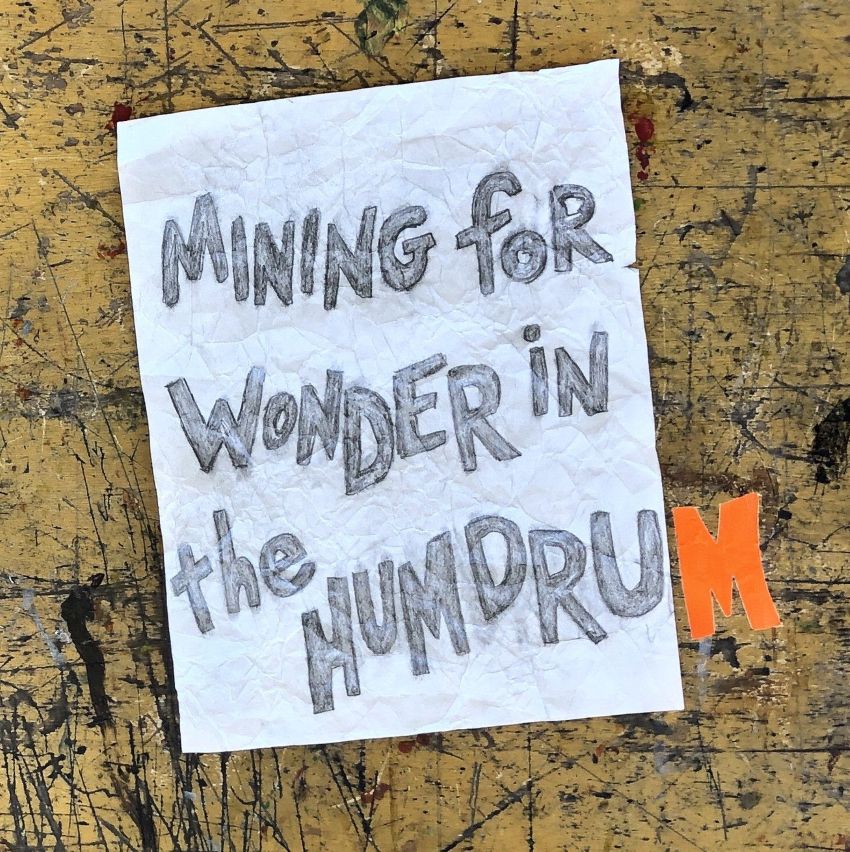 MINING FOR
WONDER iN
the HUMDRUM